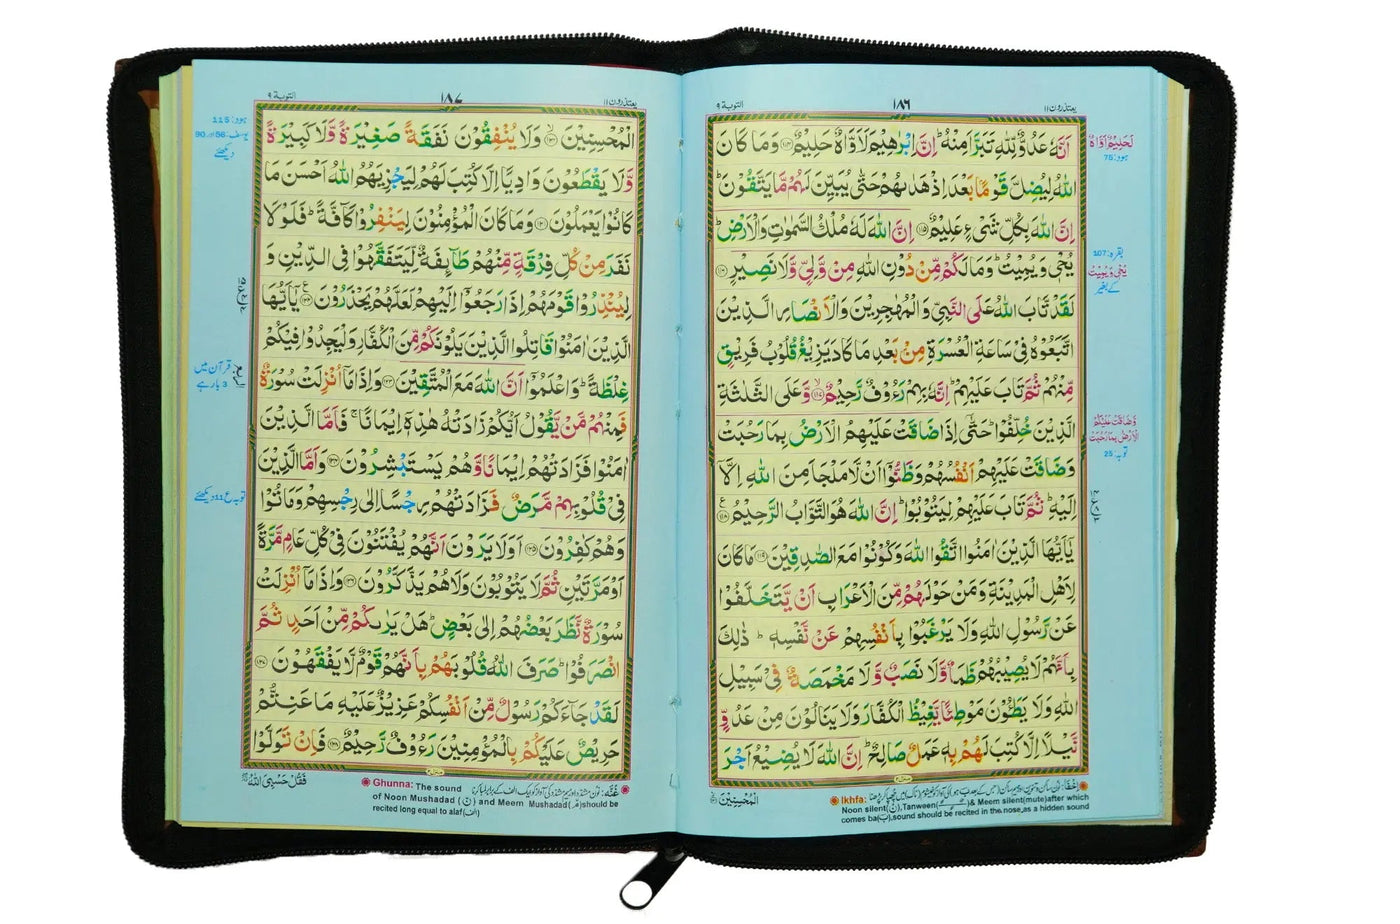 یعتذرون ۱۱ ۱۸۶ التوبة ۹
اَنَّهٗ عَدُوٌّ لِّلّٰهِ تَبَرَّاَ مِنْهُ ؕ اِنَّ اِبْرٰهِیْمَ لَاَوَّاهٌ حَلِیْمٌ ﴿۱۱۴﴾ وَ مَا كَانَ
اللّٰهُ لِیُضِلَّ قَوْمًۢا بَعْدَ اِذْ هَدٰىهُمْ حَتّٰی یُبَیِّنَ لَهُمْ مَّا یَتَّقُوْنَ ؕ
اِنَّ اللّٰهَ بِكُلِّ شَیْءٍ عَلِیْمٌ ﴿۱۱۵﴾ اِنَّ اللّٰهَ لَهٗ مُلْكُ السَّمٰوٰتِ وَالْاَرْضِ ؕ
یُحْیٖ وَ یُمِیْتُ ؕ وَ مَا لَكُمْ مِّنْ دُوْنِ اللّٰهِ مِنْ وَّلِیٍّ وَّ لَا نَصِیْرٍ ﴿۱۱۶﴾
لَقَدْ تَّابَ اللّٰهُ عَلَی النَّبِیِّ وَالْمُهٰجِرِیْنَ وَالْاَنْصَارِ الَّذِیْنَ
اتَّبَعُوْهُ فِیْ سَاعَةِ الْعُسْرَةِ مِنْۢ بَعْدِ مَا كَادَ یَزِیْغُ قُلُوْبُ فَرِیْقٍ
مِّنْهُمْ ثُمَّ تَابَ عَلَیْهِمْ ؕ اِنَّهٗ بِهِمْ رَءُوْفٌ رَّحِیْمٌ ﴿۱۱۷﴾ وَّ عَلَی الثَّلٰثَةِ
الَّذِیْنَ خُلِّفُوْا ؕ حَتّٰۤی اِذَا ضَاقَتْ عَلَیْهِمُ الْاَرْضُ بِمَا رَحُبَتْ
وَ ضَاقَتْ عَلَیْهِمْ اَنْفُسُهُمْ وَ ظَنُّوْۤا اَنْ لَّا مَلْجَاَ مِنَ اللّٰهِ اِلَّاۤ
اِلَیْهِ ؕ ثُمَّ تَابَ عَلَیْهِمْ لِیَتُوْبُوْا ؕ اِنَّ اللّٰهَ هُوَ التَّوَّابُ الرَّحِیْمُ ﴿۱۱۸﴾
یٰۤاَیُّهَا الَّذِیْنَ اٰمَنُوا اتَّقُوا اللّٰهَ وَ كُوْنُوْا مَعَ الصّٰدِقِیْنَ ﴿۱۱۹﴾ مَا كَانَ
لِاَهْلِ الْمَدِیْنَةِ وَ مَنْ حَوْلَهُمْ مِّنَ الْاَعْرَابِ اَنْ یَّتَخَلَّفُوْا
عَنْ رَّسُوْلِ اللّٰهِ وَ لَا یَرْغَبُوْا بِاَنْفُسِهِمْ عَنْ نَّفْسِهٖ ؕ ذٰلِكَ
بِاَنَّهُمْ لَا یُصِیْبُهُمْ ظَمَاٌ وَّ لَا نَصَبٌ وَّ لَا مَخْمَصَةٌ فِیْ سَبِیْلِ
اللّٰهِ وَ لَا یَطَـُٔوْنَ مَوْطِئًا یَّغِیْظُ الْكُفَّارَ وَ لَا یَنَالُوْنَ مِنْ عَدُوٍّ
نَّیْلًا اِلَّا كُتِبَ لَهُمْ بِهٖ عَمَلٌ صَالِحٌ ؕ اِنَّ اللّٰهَ لَا یُضِیْعُ اَجْرَ
الْمُحْسِنِیْنَ
لَحَلِیْمٌ اَوَّاهٌ
ہود: 75
بقرہ: 107
یُحْیٖ وَ یُمِیْتُ
کے بغیر
وَ ضَاقَتْ عَلَیْكُمُ
الْاَرْضُ بِمَا رَحُبَتْ
توبہ: 25
Ikhfa: Noon silent(نْ),Tanween & Meem silent(mute)after which
comes ba(ب),sound should be recited in the nose,as a hidden sound
یعتذرون ۱۱ ۱۸۷ التوبة ۹
الْمُحْسِنِیْنَ ﴿۱۲۰﴾ وَ لَا یُنْفِقُوْنَ نَفَقَةً صَغِیْرَةً وَّ لَا كَبِیْرَةً
وَّ لَا یَقْطَعُوْنَ وَادِیًا اِلَّا كُتِبَ لَهُمْ لِیَجْزِیَهُمُ اللّٰهُ اَحْسَنَ مَا
كَانُوْا یَعْمَلُوْنَ ﴿۱۲۱﴾ وَ مَا كَانَ الْمُؤْمِنُوْنَ لِیَنْفِرُوْا كَآفَّةً ؕ فَلَوْ لَا
نَفَرَ مِنْ كُلِّ فِرْقَةٍ مِّنْهُمْ طَآىِٕفَةٌ لِّیَتَفَقَّهُوْا فِی الدِّیْنِ وَ
لِیُنْذِرُوْا قَوْمَهُمْ اِذَا رَجَعُوْۤا اِلَیْهِمْ لَعَلَّهُمْ یَحْذَرُوْنَ ﴿۱۲۲﴾ یٰۤاَیُّهَا
الَّذِیْنَ اٰمَنُوْا قَاتِلُوا الَّذِیْنَ یَلُوْنَكُمْ مِّنَ الْكُفَّارِ وَ لْیَجِدُوْا فِیْكُمْ
غِلْظَةً ؕ وَ اعْلَمُوْۤا اَنَّ اللّٰهَ مَعَ الْمُتَّقِیْنَ ﴿۱۲۳﴾ وَ اِذَا مَاۤ اُنْزِلَتْ سُوْرَةٌ
فَمِنْهُمْ مَّنْ یَّقُوْلُ اَیُّكُمْ زَادَتْهُ هٰذِهٖۤ اِیْمَانًا ۚ فَاَمَّا الَّذِیْنَ
اٰمَنُوْا فَزَادَتْهُمْ اِیْمَانًا وَّ هُمْ یَسْتَبْشِرُوْنَ ﴿۱۲۴﴾ وَ اَمَّا الَّذِیْنَ
فِیْ قُلُوْبِهِمْ مَّرَضٌ فَزَادَتْهُمْ رِجْسًا اِلٰی رِجْسِهِمْ وَ مَاتُوْا
وَ هُمْ كٰفِرُوْنَ ﴿۱۲۵﴾ اَوَ لَا یَرَوْنَ اَنَّهُمْ یُفْتَنُوْنَ فِیْ كُلِّ عَامٍ مَّرَّةً
اَوْ مَرَّتَیْنِ ثُمَّ لَا یَتُوْبُوْنَ وَ لَا هُمْ یَذَّكَّرُوْنَ ﴿۱۲۶﴾ وَ اِذَا مَاۤ اُنْزِلَتْ
سُوْرَةٌ نَّظَرَ بَعْضُهُمْ اِلٰی بَعْضٍ ؕ هَلْ یَرٰىكُمْ مِّنْ اَحَدٍ ثُمَّ
انْصَرَفُوْا ؕ صَرَفَ اللّٰهُ قُلُوْبَهُمْ بِاَنَّهُمْ قَوْمٌ لَّا یَفْقَهُوْنَ ﴿۱۲۷﴾
لَقَدْ جَآءَكُمْ رَسُوْلٌ مِّنْ اَنْفُسِكُمْ عَزِیْزٌ عَلَیْهِ مَا عَنِتُّمْ
حَرِیْصٌ عَلَیْكُمْ بِالْمُؤْمِنِیْنَ رَءُوْفٌ رَّحِیْمٌ ﴿۱۲۸﴾ فَاِنْ تَوَلَّوْا
فَقُلْ حَسْبِیَ اللّٰهُ
ہود: 115
یوسف: 56 اور 90
دیکھئے
قرآن میں
3 بار ہے
توبہ ع 11 دیکھئے
Ghunna: The sound
of Noon Mushadad (نّ) and Meem Mushadad(مّ)should be
recited long equal to alaf(الف)